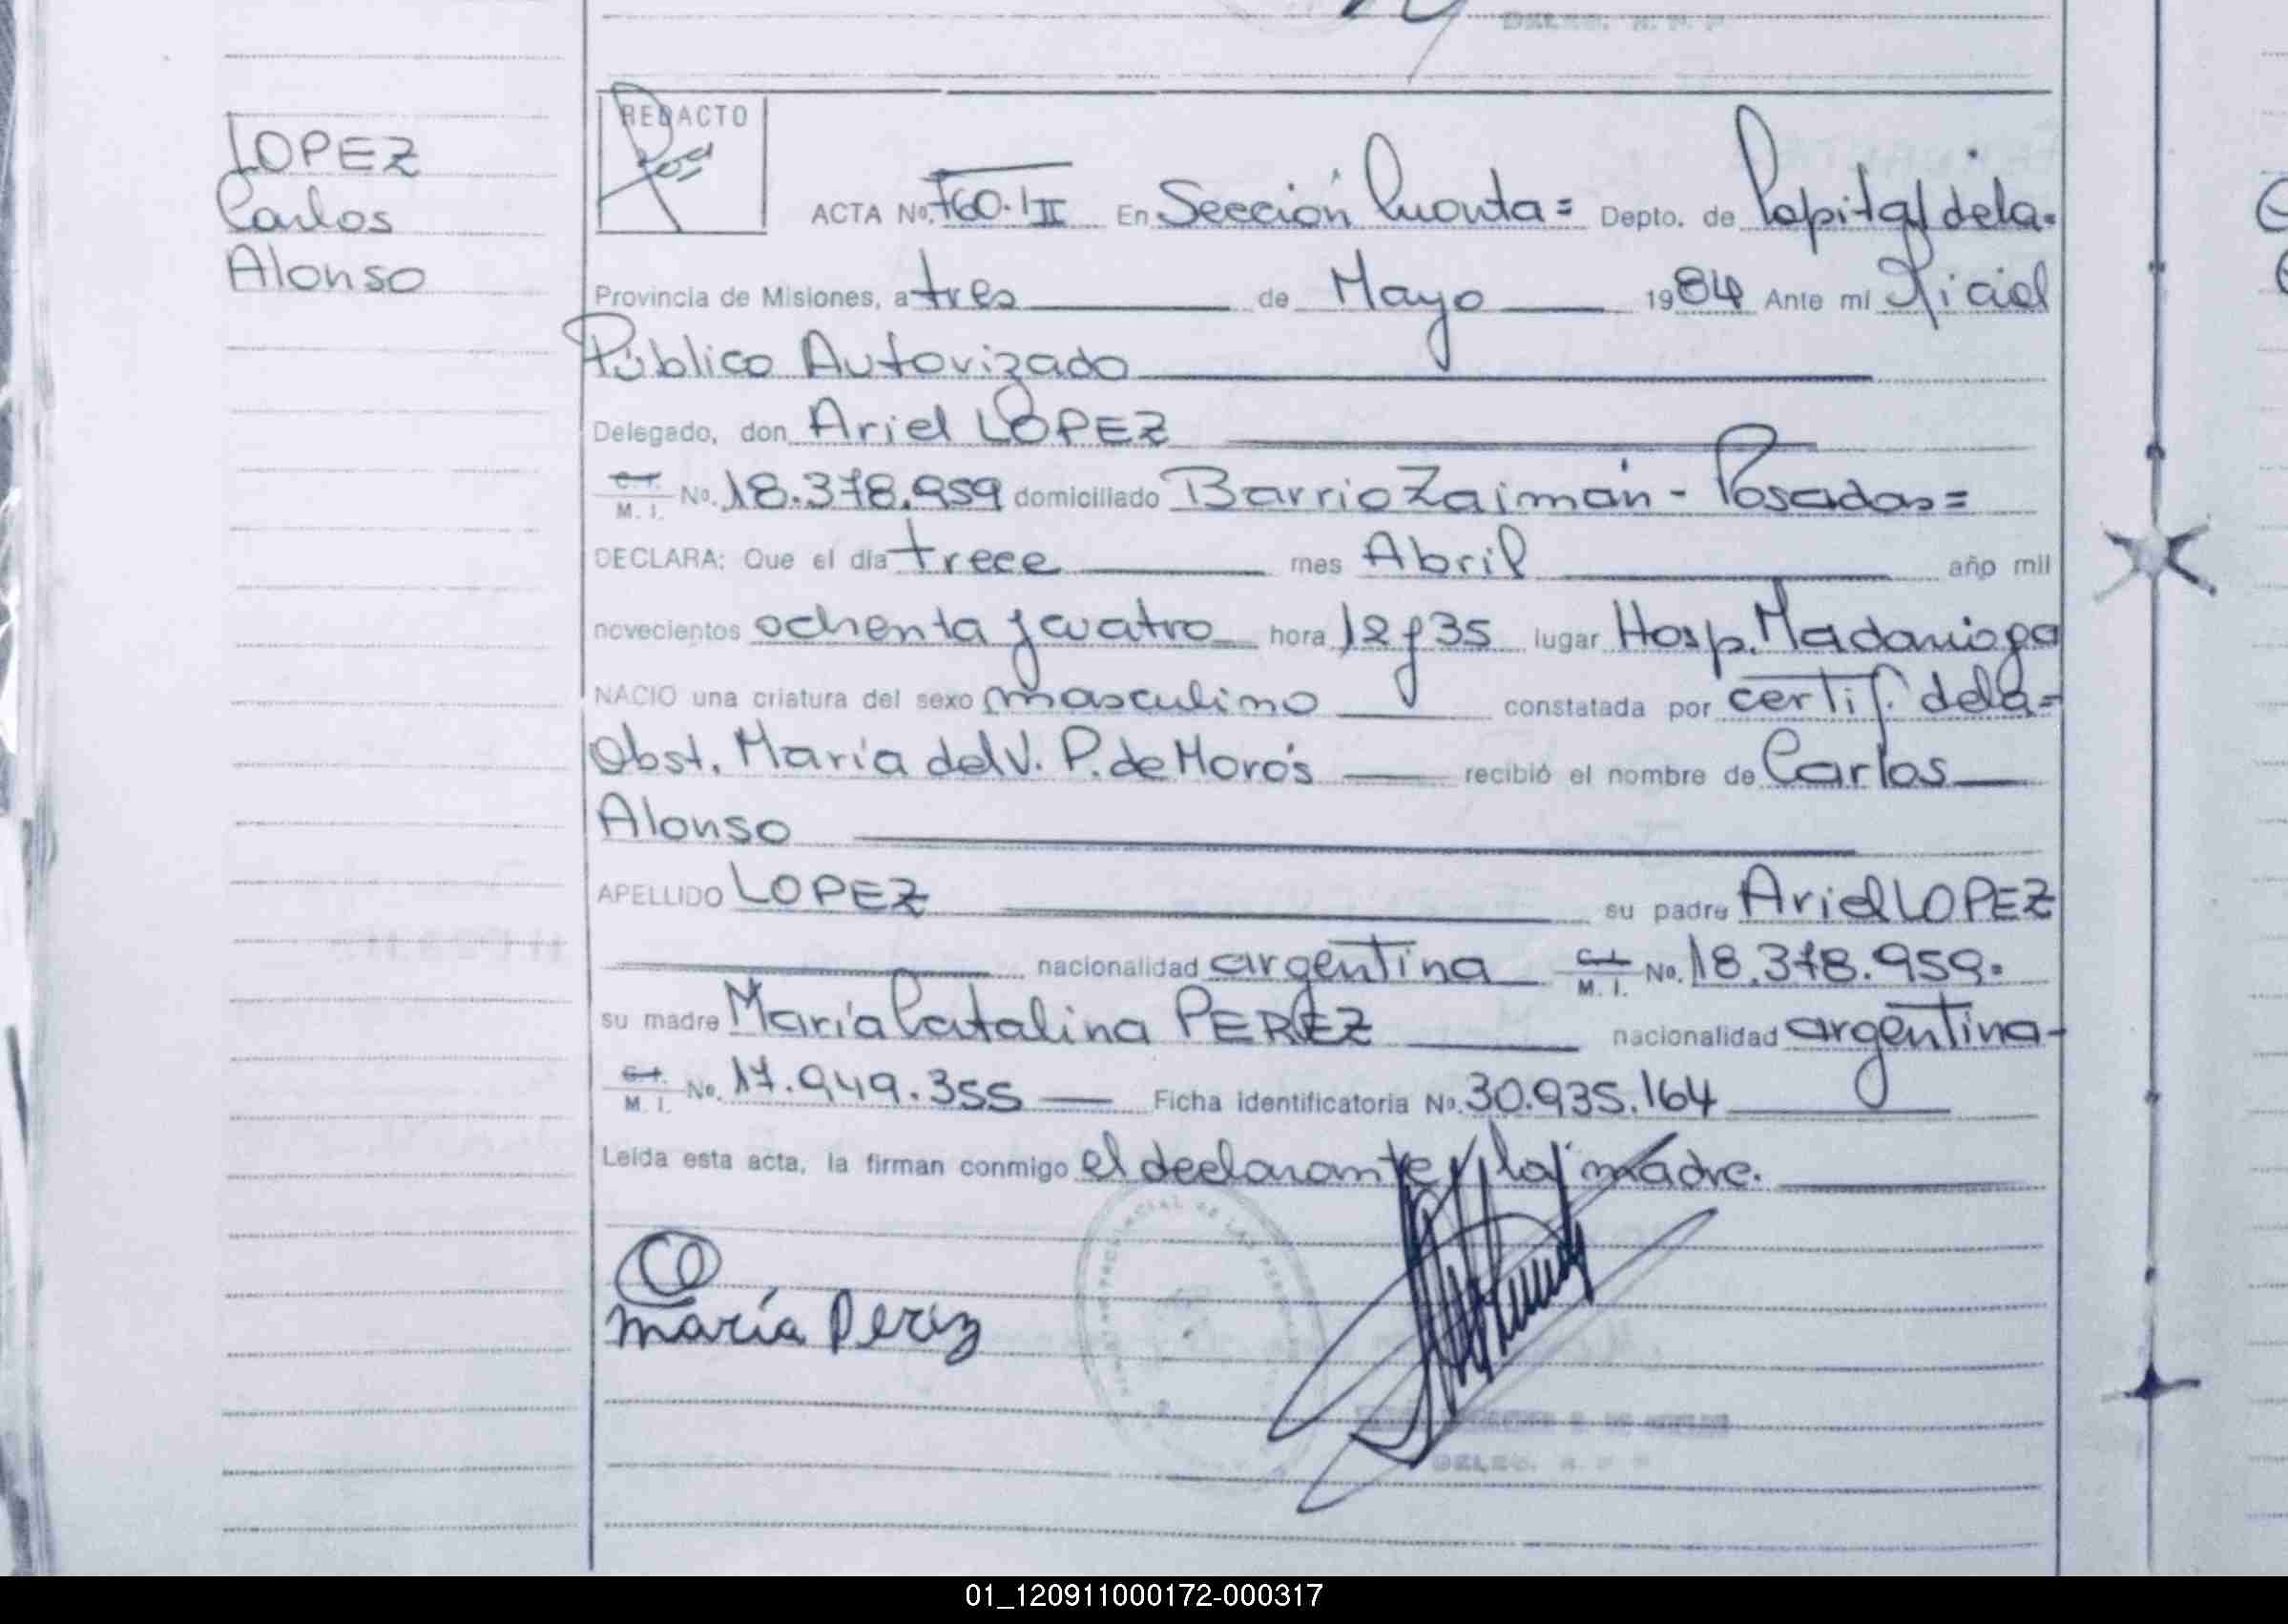 LOPEZ
Carlos
Alonso
REDACTO
ACTA No. 760. III En Sección Cuarta = Depto. de Capital de la =
Provincia de Misiones, a tres de Mayo 1984 Ante mí Oficial
Público Autorizado
Delegado, don Ariel LOPEZ
C. I. M. I. No. 18.378.959 domiciliado Barrio Zaimán - Posadas =
DECLARA: Que el día trece mes Abril año mil
novecientos ochenta y cuatro hora 12 y 35 lugar Hosp. Madariaga
NACIO una criatura del sexo masculino constatada por certif. de la =
Obst. María del V. P. de Morós recibió el nombre de Carlos
Alonso
APELLIDO LOPEZ su padre Ariel LOPEZ
nacionalidad argentina C. I. M. I. No. 18.378.959.
su madre María Catalina PEREZ nacionalidad argentina -
C. I. M. I. No. 17.949.355 Ficha identificatoria No. 30.935.164
Leída esta acta, la firman conmigo el declarante y la madre.
maría Perez
DELEG. R. P. P
01_120911000172-000317